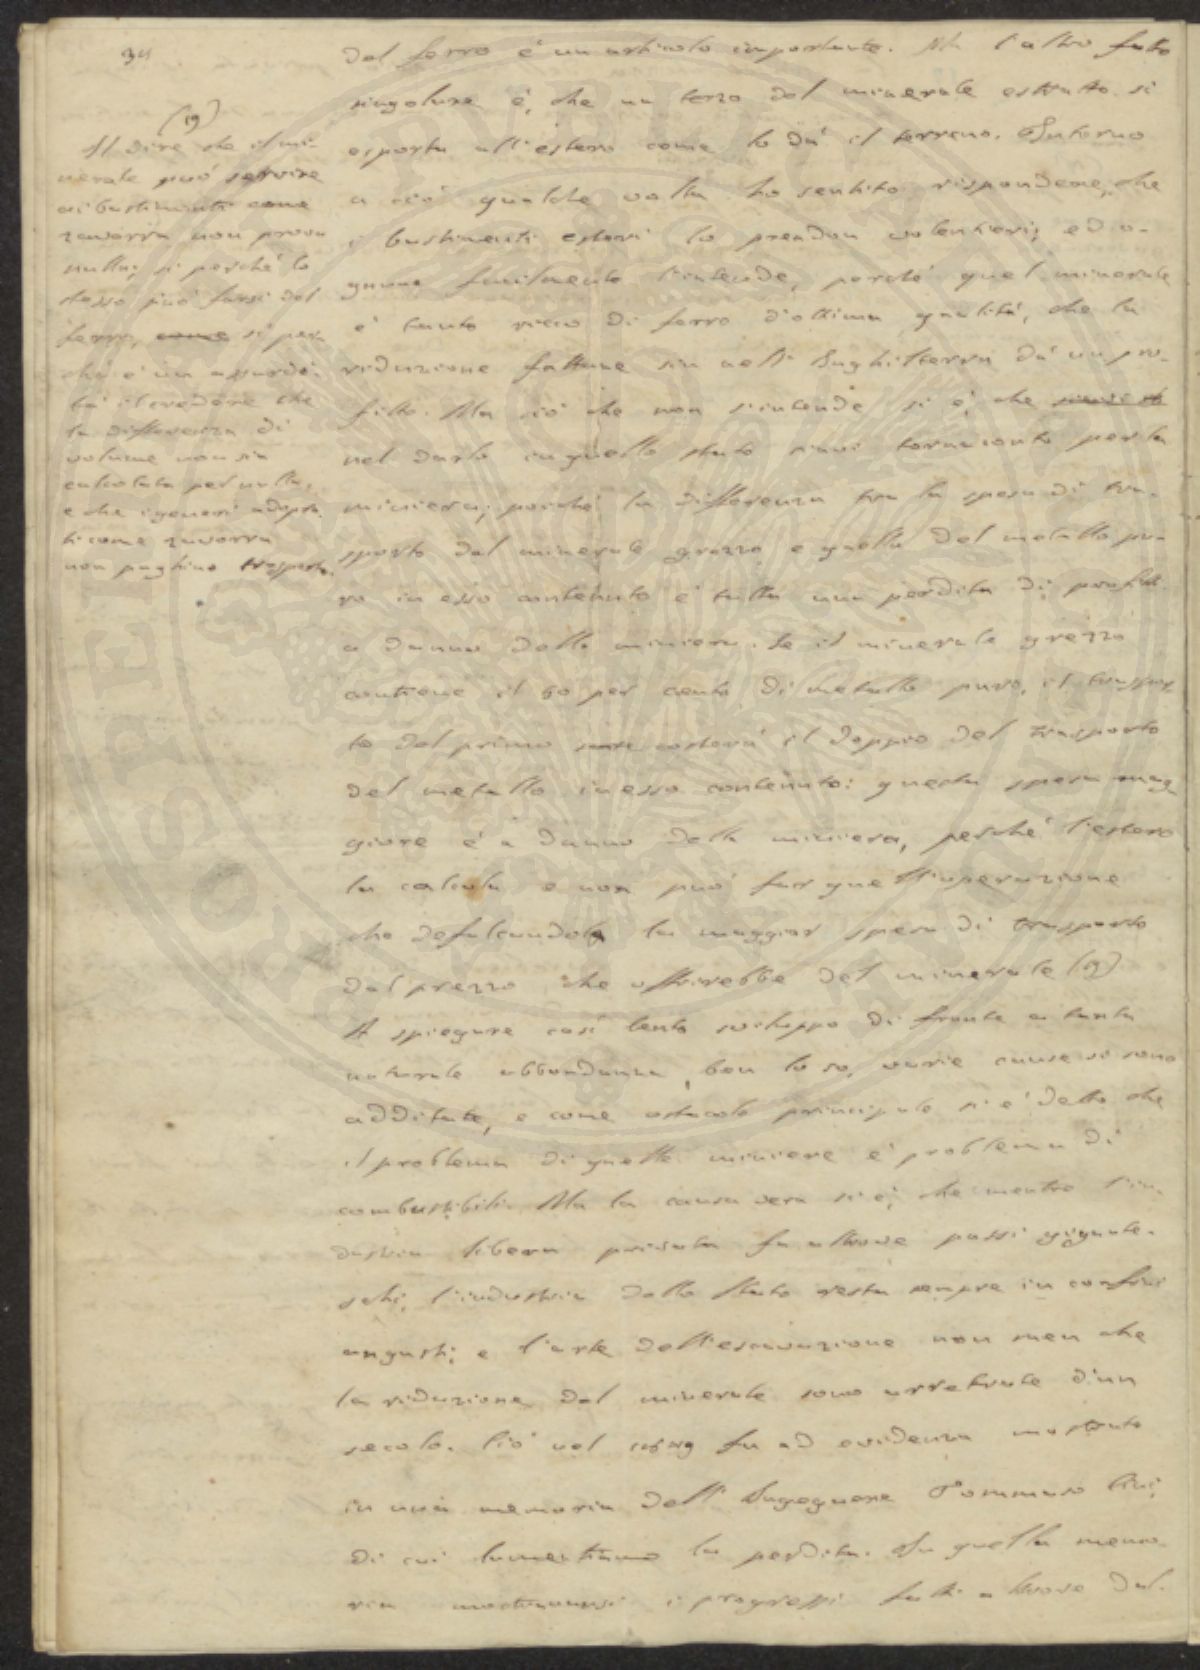 34
(9)
Il dire che il mi-
nerale può servire
ai bastimenti come
zavorra non prova
nulla; sì perchè lo
stesso può farsi del
ferro, come sì per
chè è un assurdi-
tà il credere che
la differenza di
volume non sia
calcolata per nulla,
e che i generi adopra
ti come zavorra
non paghino trasporto.
del ferro è un articolo importante. Ma l'altro fatto
singolare è, che un terzo del minerale estratto si
esporta all'estero come lo dà il terreno. Intorno
a ciò qualche volta ho sentito rispondere, che
i bastimenti esteri lo prendon volentieri; ed o-
gnuno facilmente l'intende, perchè quel minerale
è tanto ricco di ferro d'ottima qualità, che la
riduzione fattane sin nell'Inghilterra dà un pro-
fitto. Ma ciò che non s'intende si è, che
nel darlo in quello stato siavi tornaconto per la
miniera; poichè la differenza tra la spesa di tra-
sporto del minerale grezzo e quella del metallo pu-
ro in esso contenuto è tutta una perdita di profitti
a danno della miniera. Se il minerale grezzo
contiene il 50 per cento di metallo puro, il traspor-
to del primo costerà il doppio del trasporto
del metallo in esso contenuto: questa spesa mag-
giore è a danno della miniera, perchè l'estero
la calcola e non può far quell'operazione
che defalcandola la maggior spesa di trasporto
dal prezzo che offrirebbe del minerale (9).
A spiegare così lento sviluppo di fronte a tanta
naturale abbondanza, ben lo so, varie cause si sono
additate, e come ostacolo principale si è detto che
il problema di quelle miniere è problema di
combustibili. Ma la causa vera si è, che mentre l'in-
dustria libera privata fa altrove passi gigante-
schi, l'industria dello Stato resta sempre in confini
angusti; e l'arte dell'escavazione non men che
la riduzione del minerale sono arretrate d'un
secolo. Ciò nel fu ad evidenza mostrato
in una memoria dell'Ingegnere Tommaso
di cui lamentiamo la perdita. In quella memo-
ria i progressi fatti altrove dal-